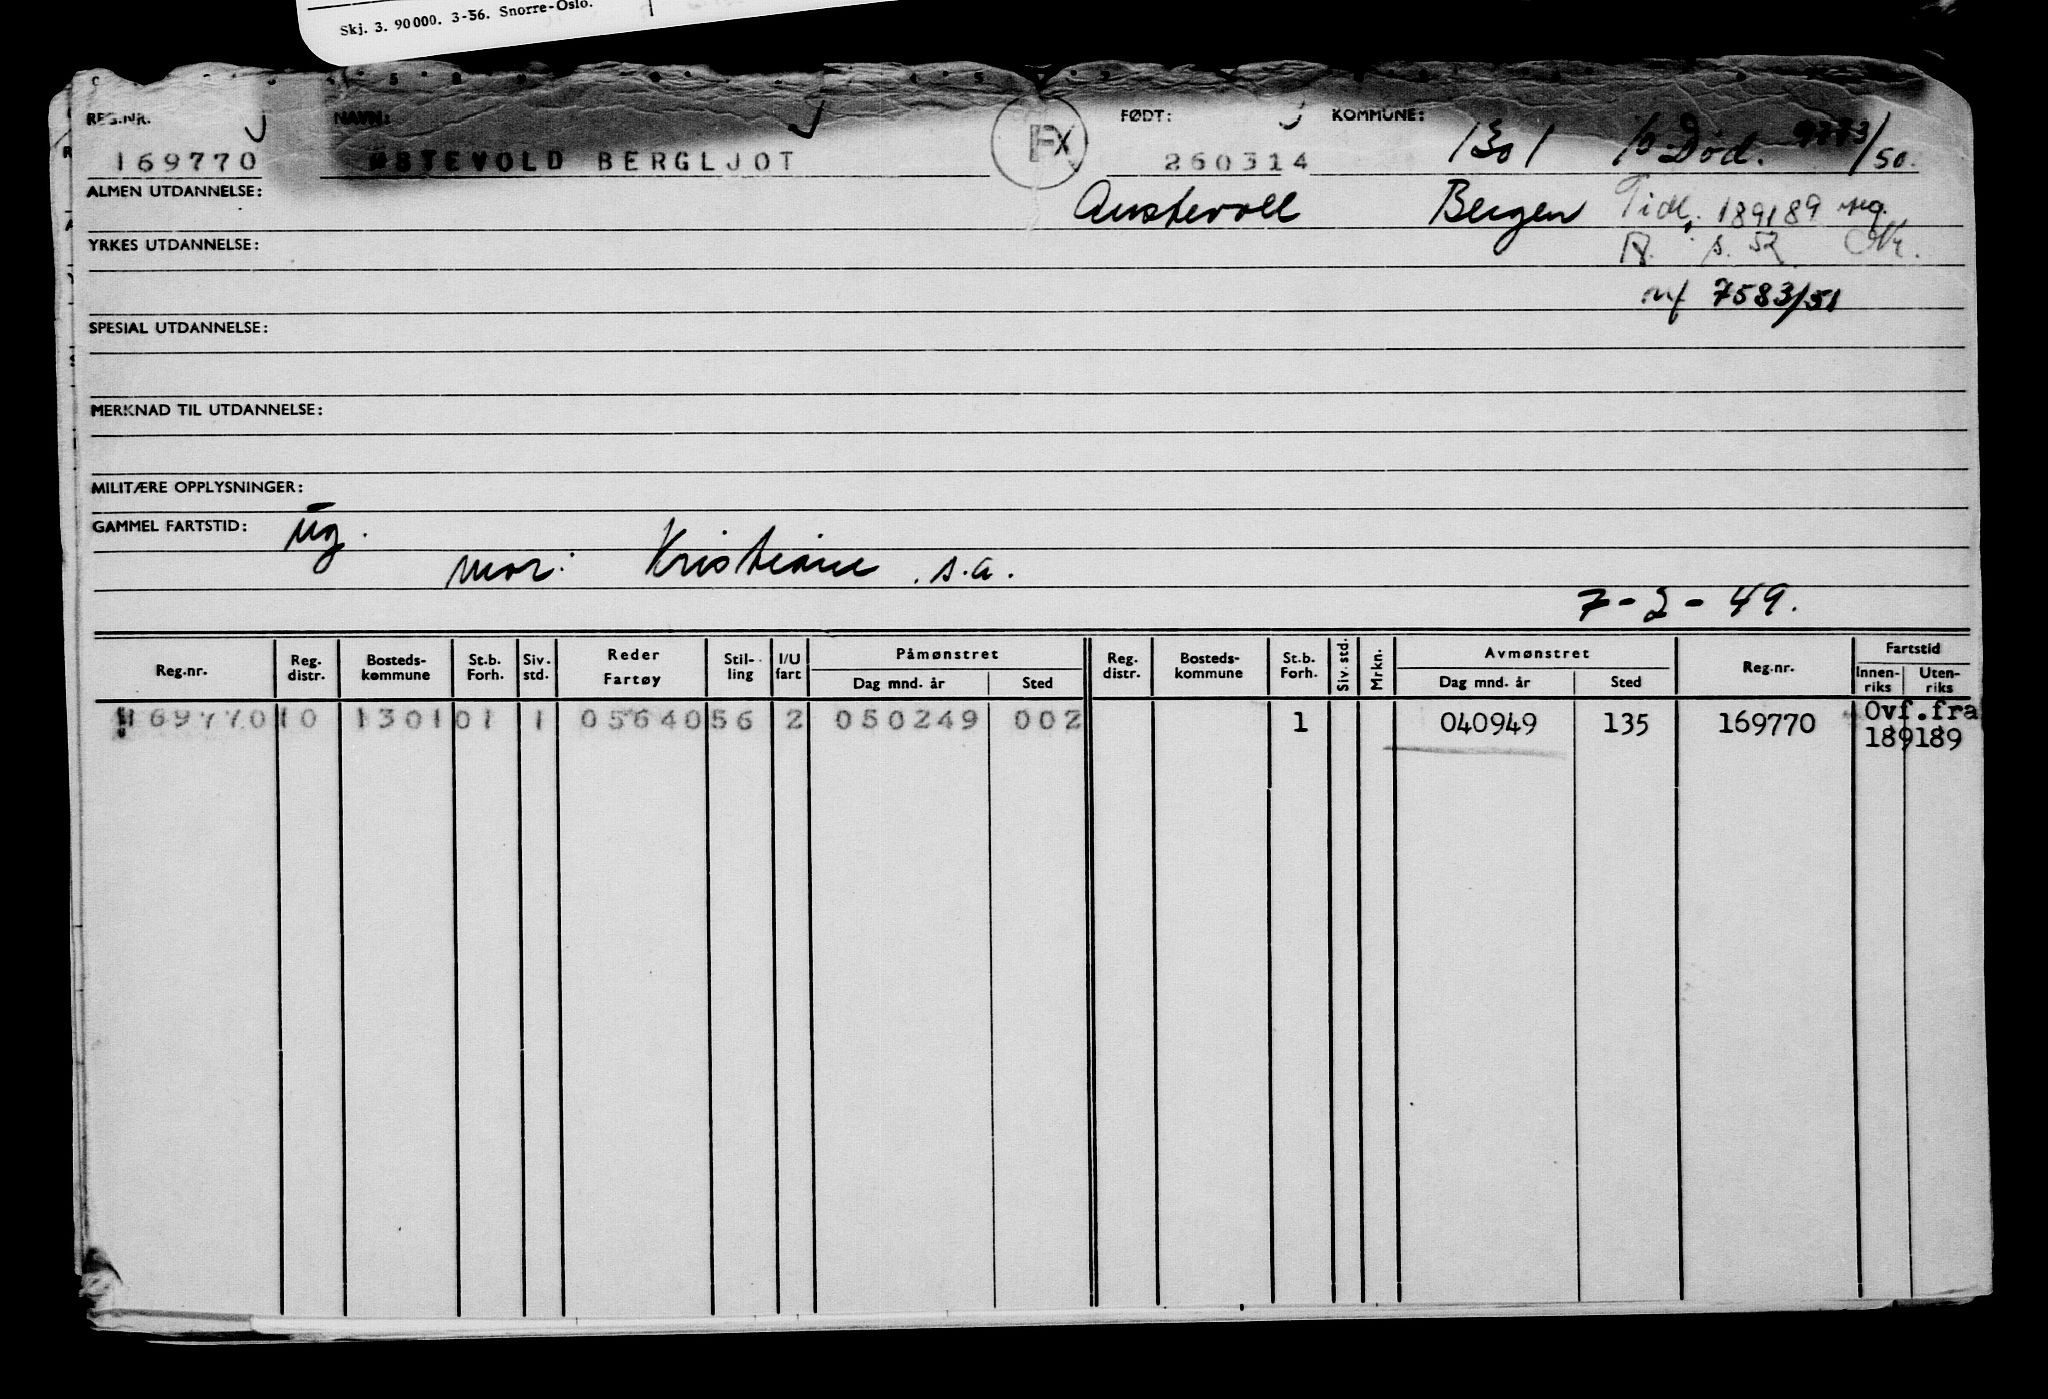 Skj. 3. 90000. 3-56. Snorre-Oslo.
REG.NR. NAVN: FØDT: KOMMUNE: 1301 Død. 9773/50.
169770 ØSTEVOLD BERGLJOT FX 260314
ALMEN UTDANNELSE: Austevoll Bergen Tidl. 189189 reg.
YRKES UTDANNELSE: s. 52
mf 7583/51
SPESIAL UTDANNELSE:
MERKNAD TIL UTDANNELSE:
MILITÆRE OPPLYSNINGER:
GAMMEL FARTSTID: ug.
mor: Kristiane s.a.
7-2-49.
Reg.nr. Reg. distr. Bosteds-kommune St.b. Forh. Siv. std. Reder Fartøy Stil-ling I/U fart Påmønstret Dag mnd. år Sted Reg. distr. Bosteds-kommune St.b. Forh. Siv. std. Mrkn. Avmønstret Dag mnd. år Sted Reg.nr. Fartstid Innen-riks Uten-riks
169770 10 1301 01 1 05640 56 2 050249 002 1 040949 135 169770 Ovf.fra
189189